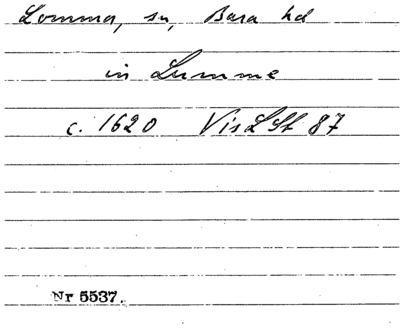 Lomma, sn, Bara hd
in Lumme
c. 1620 VisLSt 87
Nr 5537.